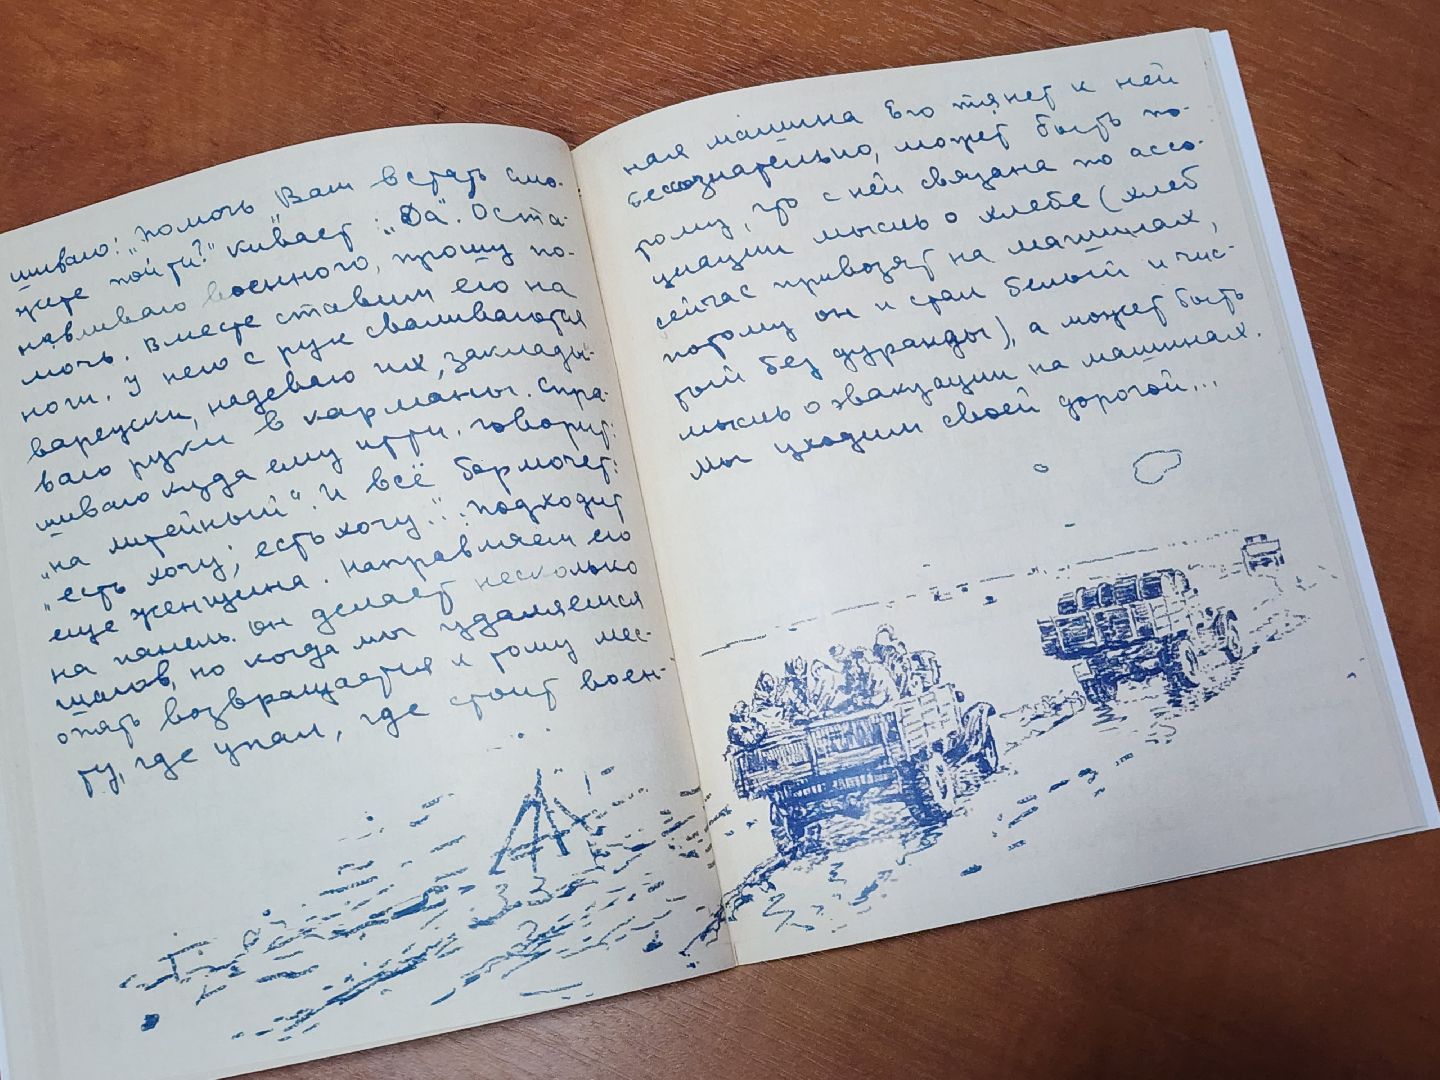 шиваю: "Помочь Вам встать смо-
жете пойти?" кивает: "Да". Оста-
навливаю военного, прошу по-
мочь. Вместе ставим его на
ноги. У него с рук сваливаются
варежки, надеваю их, заклады-
ваю руки в карманы. Спра-
шиваю куда ему идти. говорит:
"на Литейный". И всё бормочет:
"есть хочу; есть хочу"... Подходит
еще женщина. Направляем его
на панель. Он делает несколько
шагов, но когда мы удаляемся
опять возвращается к тому мес-
ту, где упал, где стоит воен-
ная машина Его тянет к ней
бессознательно, может быть по-
тому, что с ней связана по ассо-
циации мысль о хлебе (хлеб
сейчас привозят на машинах,
потому он и стал белый и чис-
тый без дуранды), а может быть
мысль о эвакуации на машинах.
Мы уходим своей дорогой...